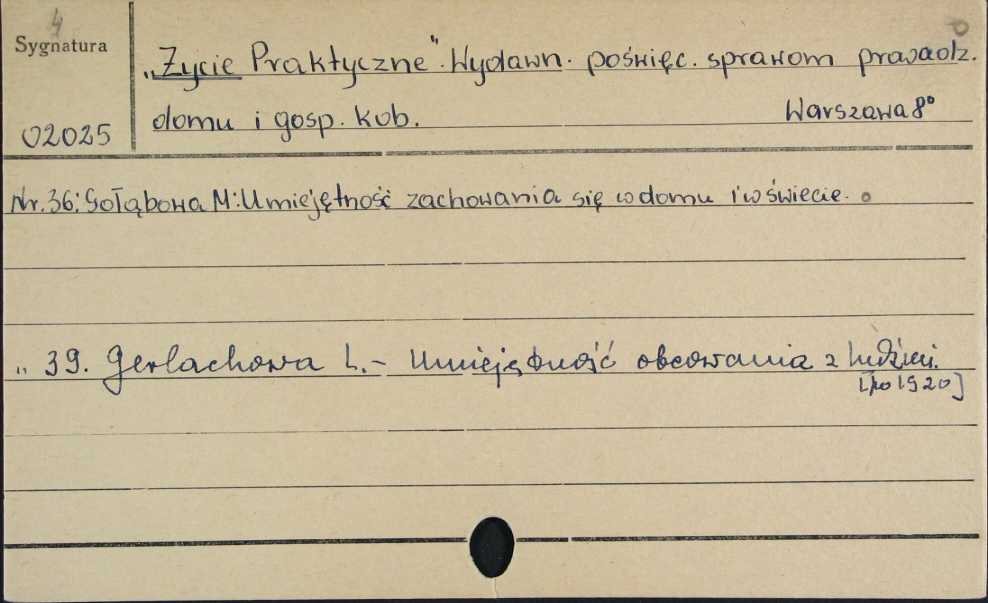 4
Sygnatura
„Życie Praktyczne". Wydawn. poświęc. sprawom prowadz.
domu i gosp. kob. Warszawa 8°
02025
Nr. 36: Gołąbowa M: Umiejętność zachowania się w domu i w świecie.
„ 39. Gerlachowa L. - Umiejętność obcowania z ludźmi.
[po 1920]